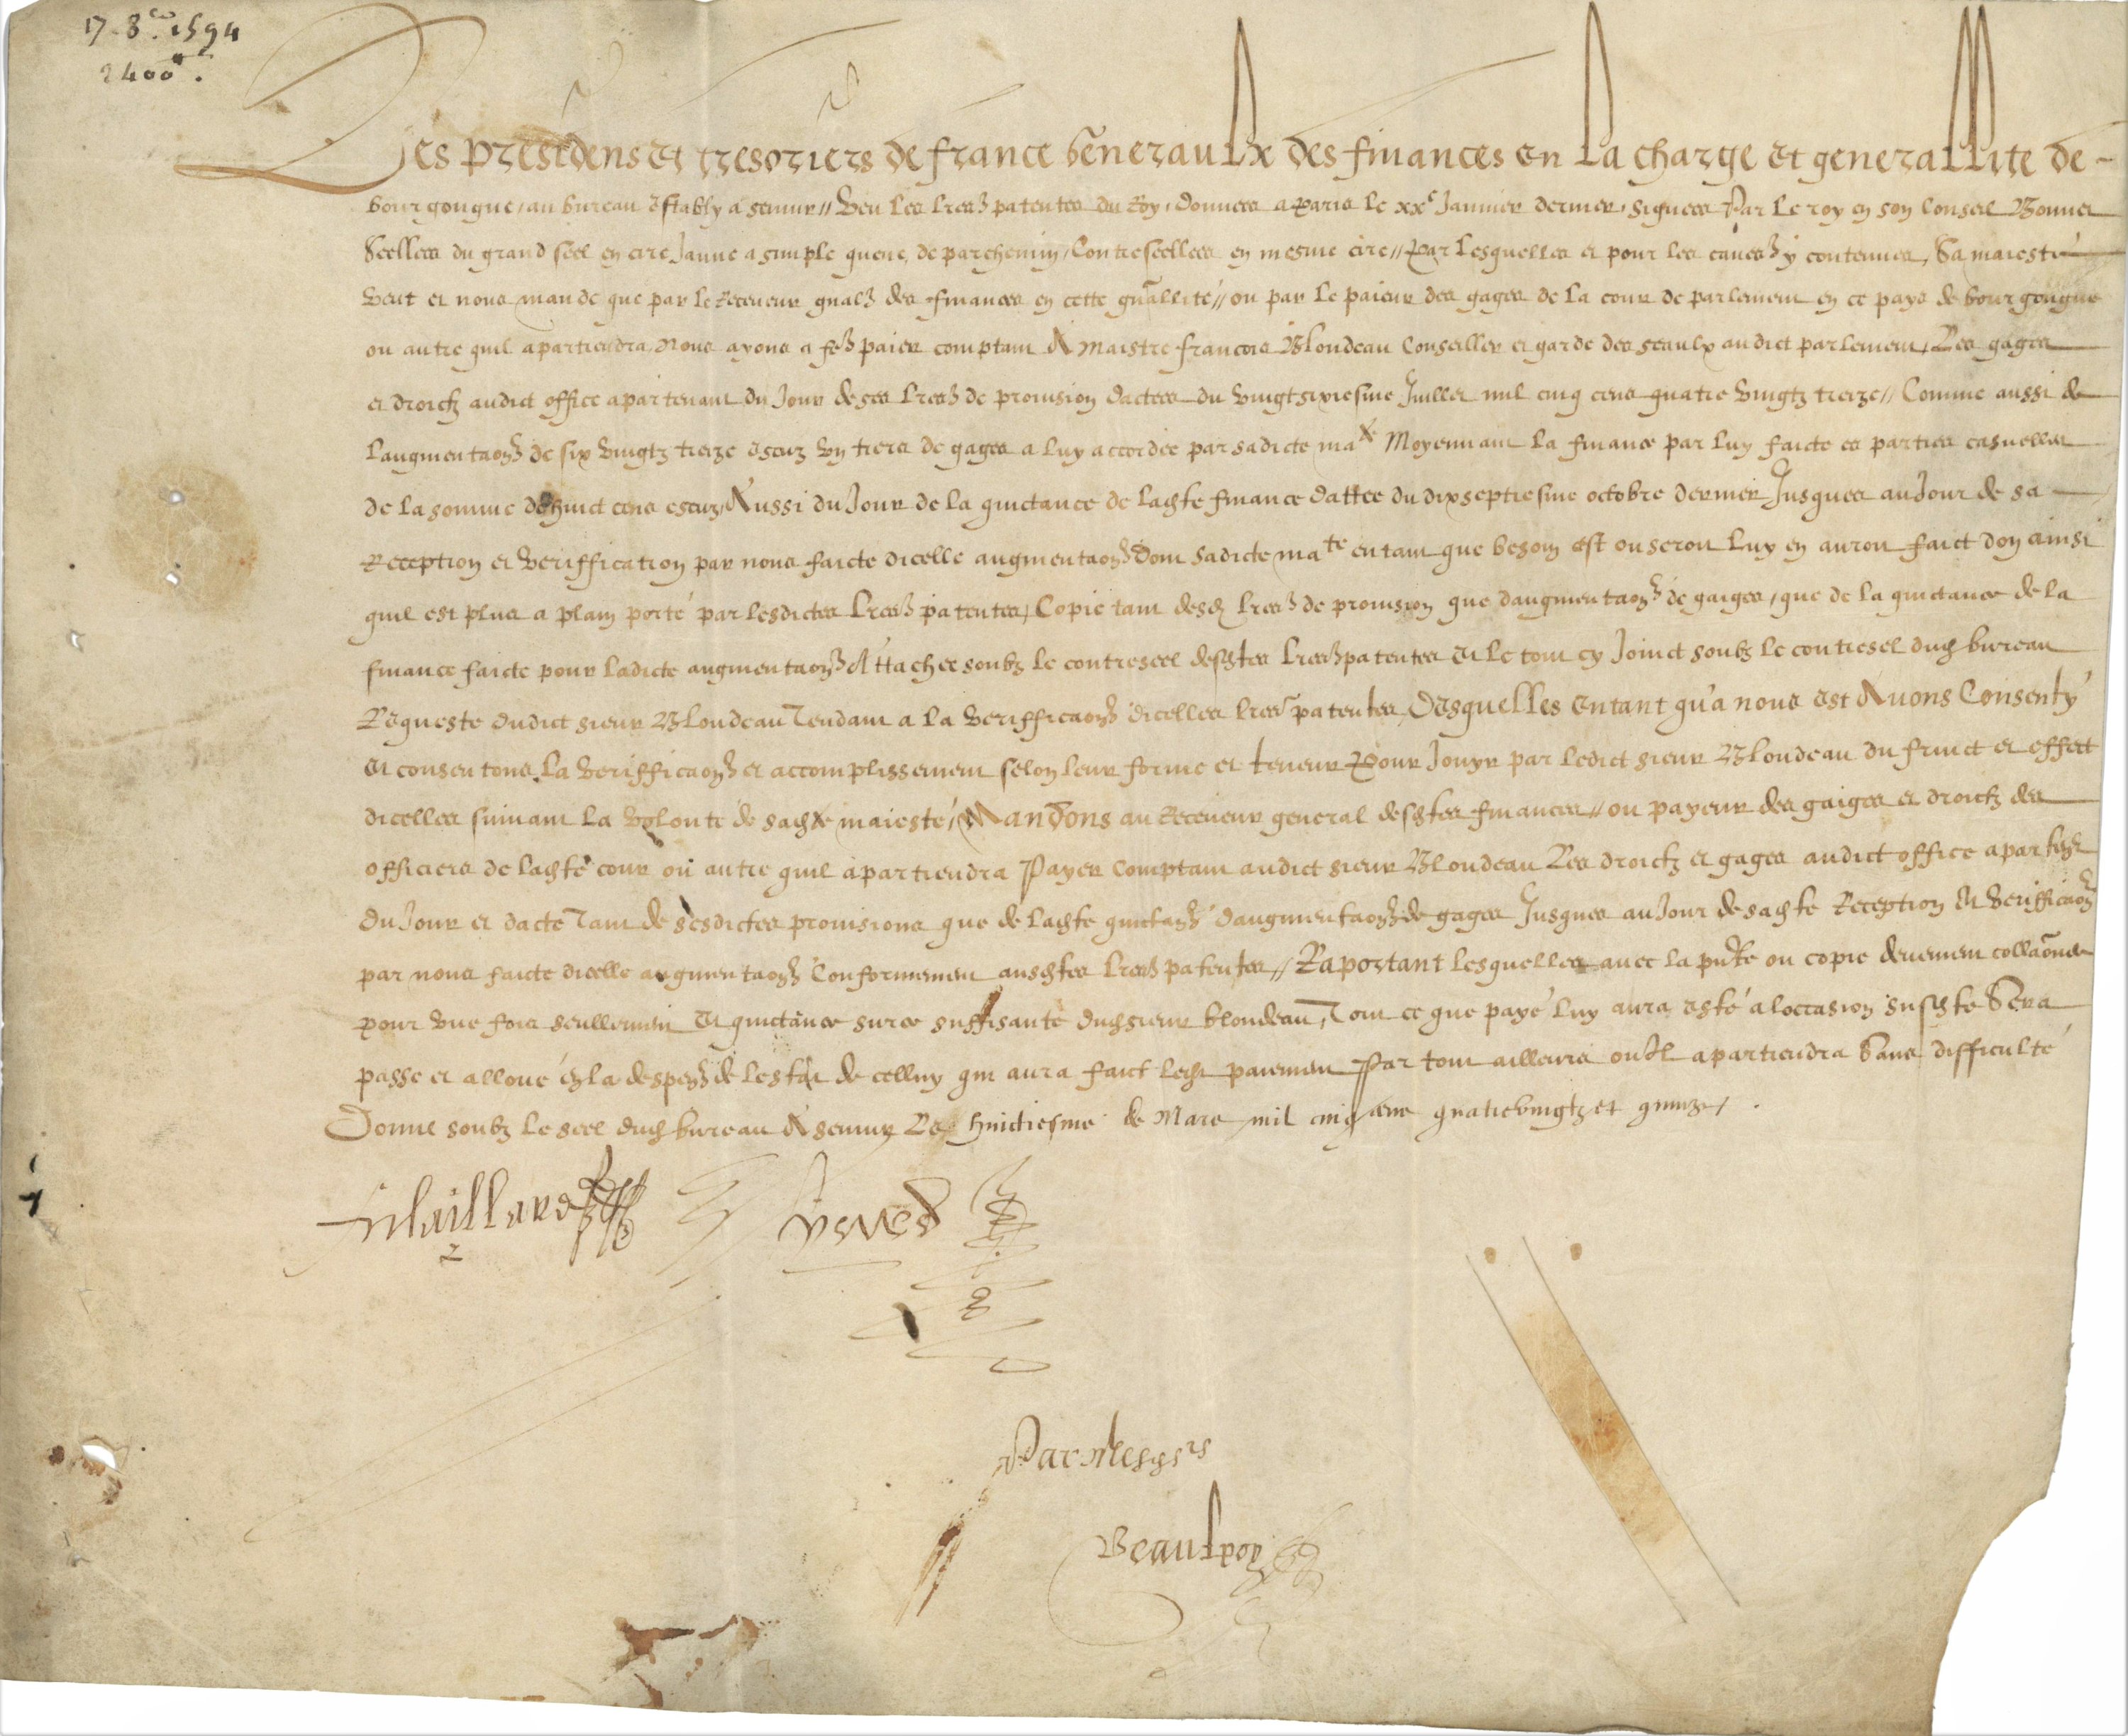 17. 8.bre 1594
2400#.
Les presidens et tresoriers de france generaulx des finances en la charge et generallite de
bourgongne, au bureau estably a semur// Veu les lres patentes du Roy, donnees a paris le xxe Janvier dernier, signees Par le roy en son Conseil Bonnet
Seellees du grand seel en cire Jaune a simple queue, de parchemin, Contreseellees en mesme cire// par lesquelles et pour les causes y contenues, Sa maiesté
veut et nous mande que par le Receveur gnal des finances en cette gnallité// ou par le paieur des gages de la cour de parlement en ce pays de bourgongne
ou autre quil apartiendra, Nous ayons a fe paier comptant A Maistre francois Blondeau Conseiller et garde des seaulx audict parlement, Les gages
et droictz audict office apartenant du Jour de ses lres de provision dactees du vingtsixiesme Juillet mil cinq cens quatre vingtz treize// Comme aussi de
Laugmentaon de six vingtz treize escuz un tiers de gages a luy accordée par sadicte mate Moyennant la finance par luy faicte es parties casuelles
de la somme de huict cens escuz, Aussi du Jour de la quictance de ladte finance dattee du dixseptiesme octobre dernier Jusques au Jour de sa
Reception et veriffication par nous faicte dicelle augmentaon Dont sadicte mate en tant que besoin est ou seroit Luy en auroit faict don ainsi
quil est plus a plain porté par lesdictes lres patentes, Copie tant desd lres de provision que daugmentaon de gaiges, que de la quictance de la
finance faicte pour ladicte augmentaon Attachee soubz le contreseel desdtes lres patentes Et le tout cy Joinct soubz le contresel dud bureau
Requeste dudict sieur Blondeau Tendant a la verifficaon dicelles lres patentes, Desquelles entant qu'a nous est Avons Consenty
Et consentons la verifficaon et accomplissement selon leur forme et teneur Pour Jouyr par ledict sieur Blondeau du fruict et effect
dicelles suivant la volonté de sadte maiesté, Mandons au Receveur general desdtes finances// ou payeur des gaiges et droictz des
officiers de ladte cour ou autre quil apartiendra Payer Comptant audict sieur Blondeau Les droictz et gages audict office aparten
du Jour et dacte Tant de sesdictes provisions que de ladte quictan daugmentaon de gages Jusques au Jour de sadte Reception Et verifficaon
par nous faicte dicelle augmentaon Conformement ausdtes lres patentes// Raportant lesquelles avec la pnte ou copie deuement collaonee
pour une fois seullement Et quictance sur ce suffisante dud sieur blondeau, Tout ce que payé luy aura esté a loccasion susdte Sera
passe et alloué en la despen de lestat de celluy qui aura faict led paiement Par tout ailleurs ou Il apartiendra Sans difficulté
Donne soubz le seel dud bureau A semur Le huictiesme de Mars mil cinq cens quatrevingtz et quinze, .
Maillard
Par mesdsrs
Beaulxpoy